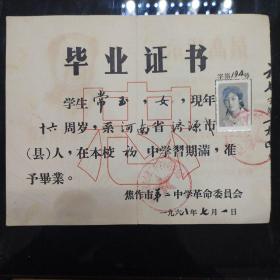 毕业证书
字第194号
学生常玉，女，现年
十六周岁，系河南省济源市
（县）人，在本校初中学習期滿，准
予畢業。
忠
焦作市第二中学革命委员会
一九六八年七月一日